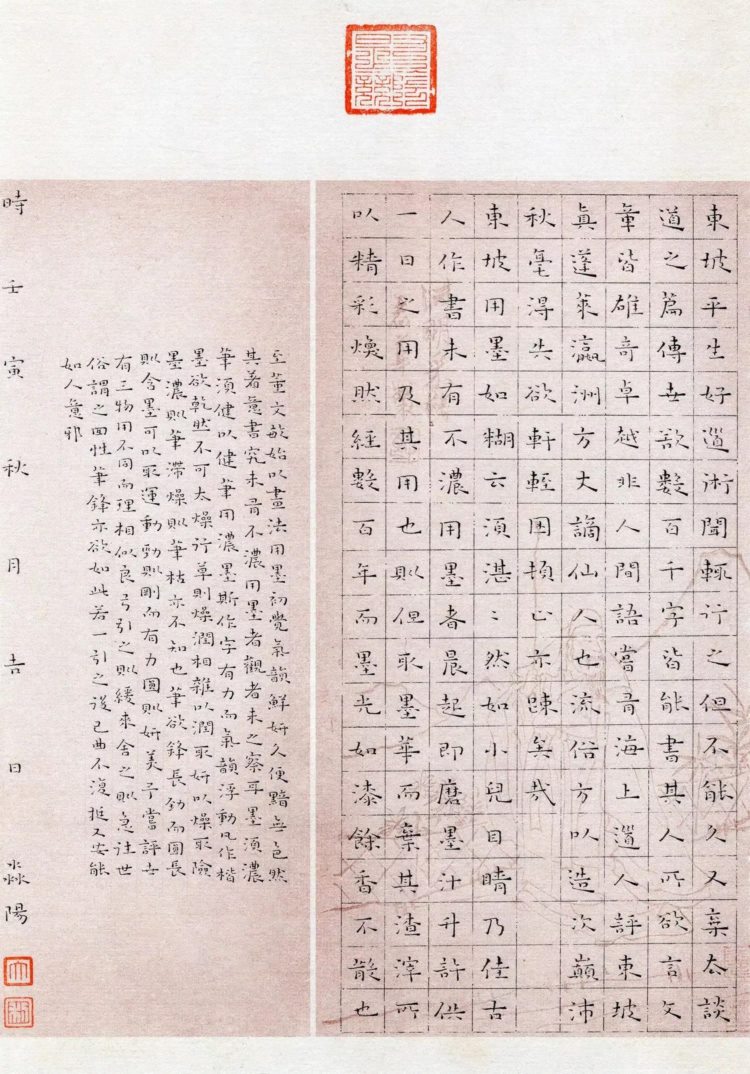 東坡平生好道術聞輒行之但不能久又棄去談
道之篇傳世欲數百千字皆能書其人所欲言文
章皆雄奇卓越非人間語嘗有海上道人評東坡
真蓬萊瀛洲方丈謫仙人也流俗方以造次顛沛
秋毫得失欲軒輊困頓止亦踈矣哉
東坡用墨如糊云須湛〻然如小兒目睛乃佳古
人作書未有不濃用墨者晨起即磨墨汁升許供
一日之用及其用也則但取墨華而棄其渣滓所
以精彩煥然經數百年而墨光如漆餘香不散也
至董文敏始以畫法用墨初覺氣韻鮮妍久便黯無色然
其著意書究未有不濃用墨者觀者未之察耳墨須濃
筆須健以健筆用濃墨斯作字有力而氣韻浮動凡作楷
墨欲乾然不可太燥行草則燥潤相雜以潤取妍以燥取險
墨濃則筆滯燥則筆枯亦不知也筆欲鋒長勁而圓長
則含墨可以取運動勁則剛而有力圓則妍美予嘗評世
有三物用不同而理相似良弓引之則緩來舍之則急往世
俗謂之回性筆鋒亦欲如此若一引之後已曲不復挺又安能
如人意邪
時壬寅秋月吉日淼陽